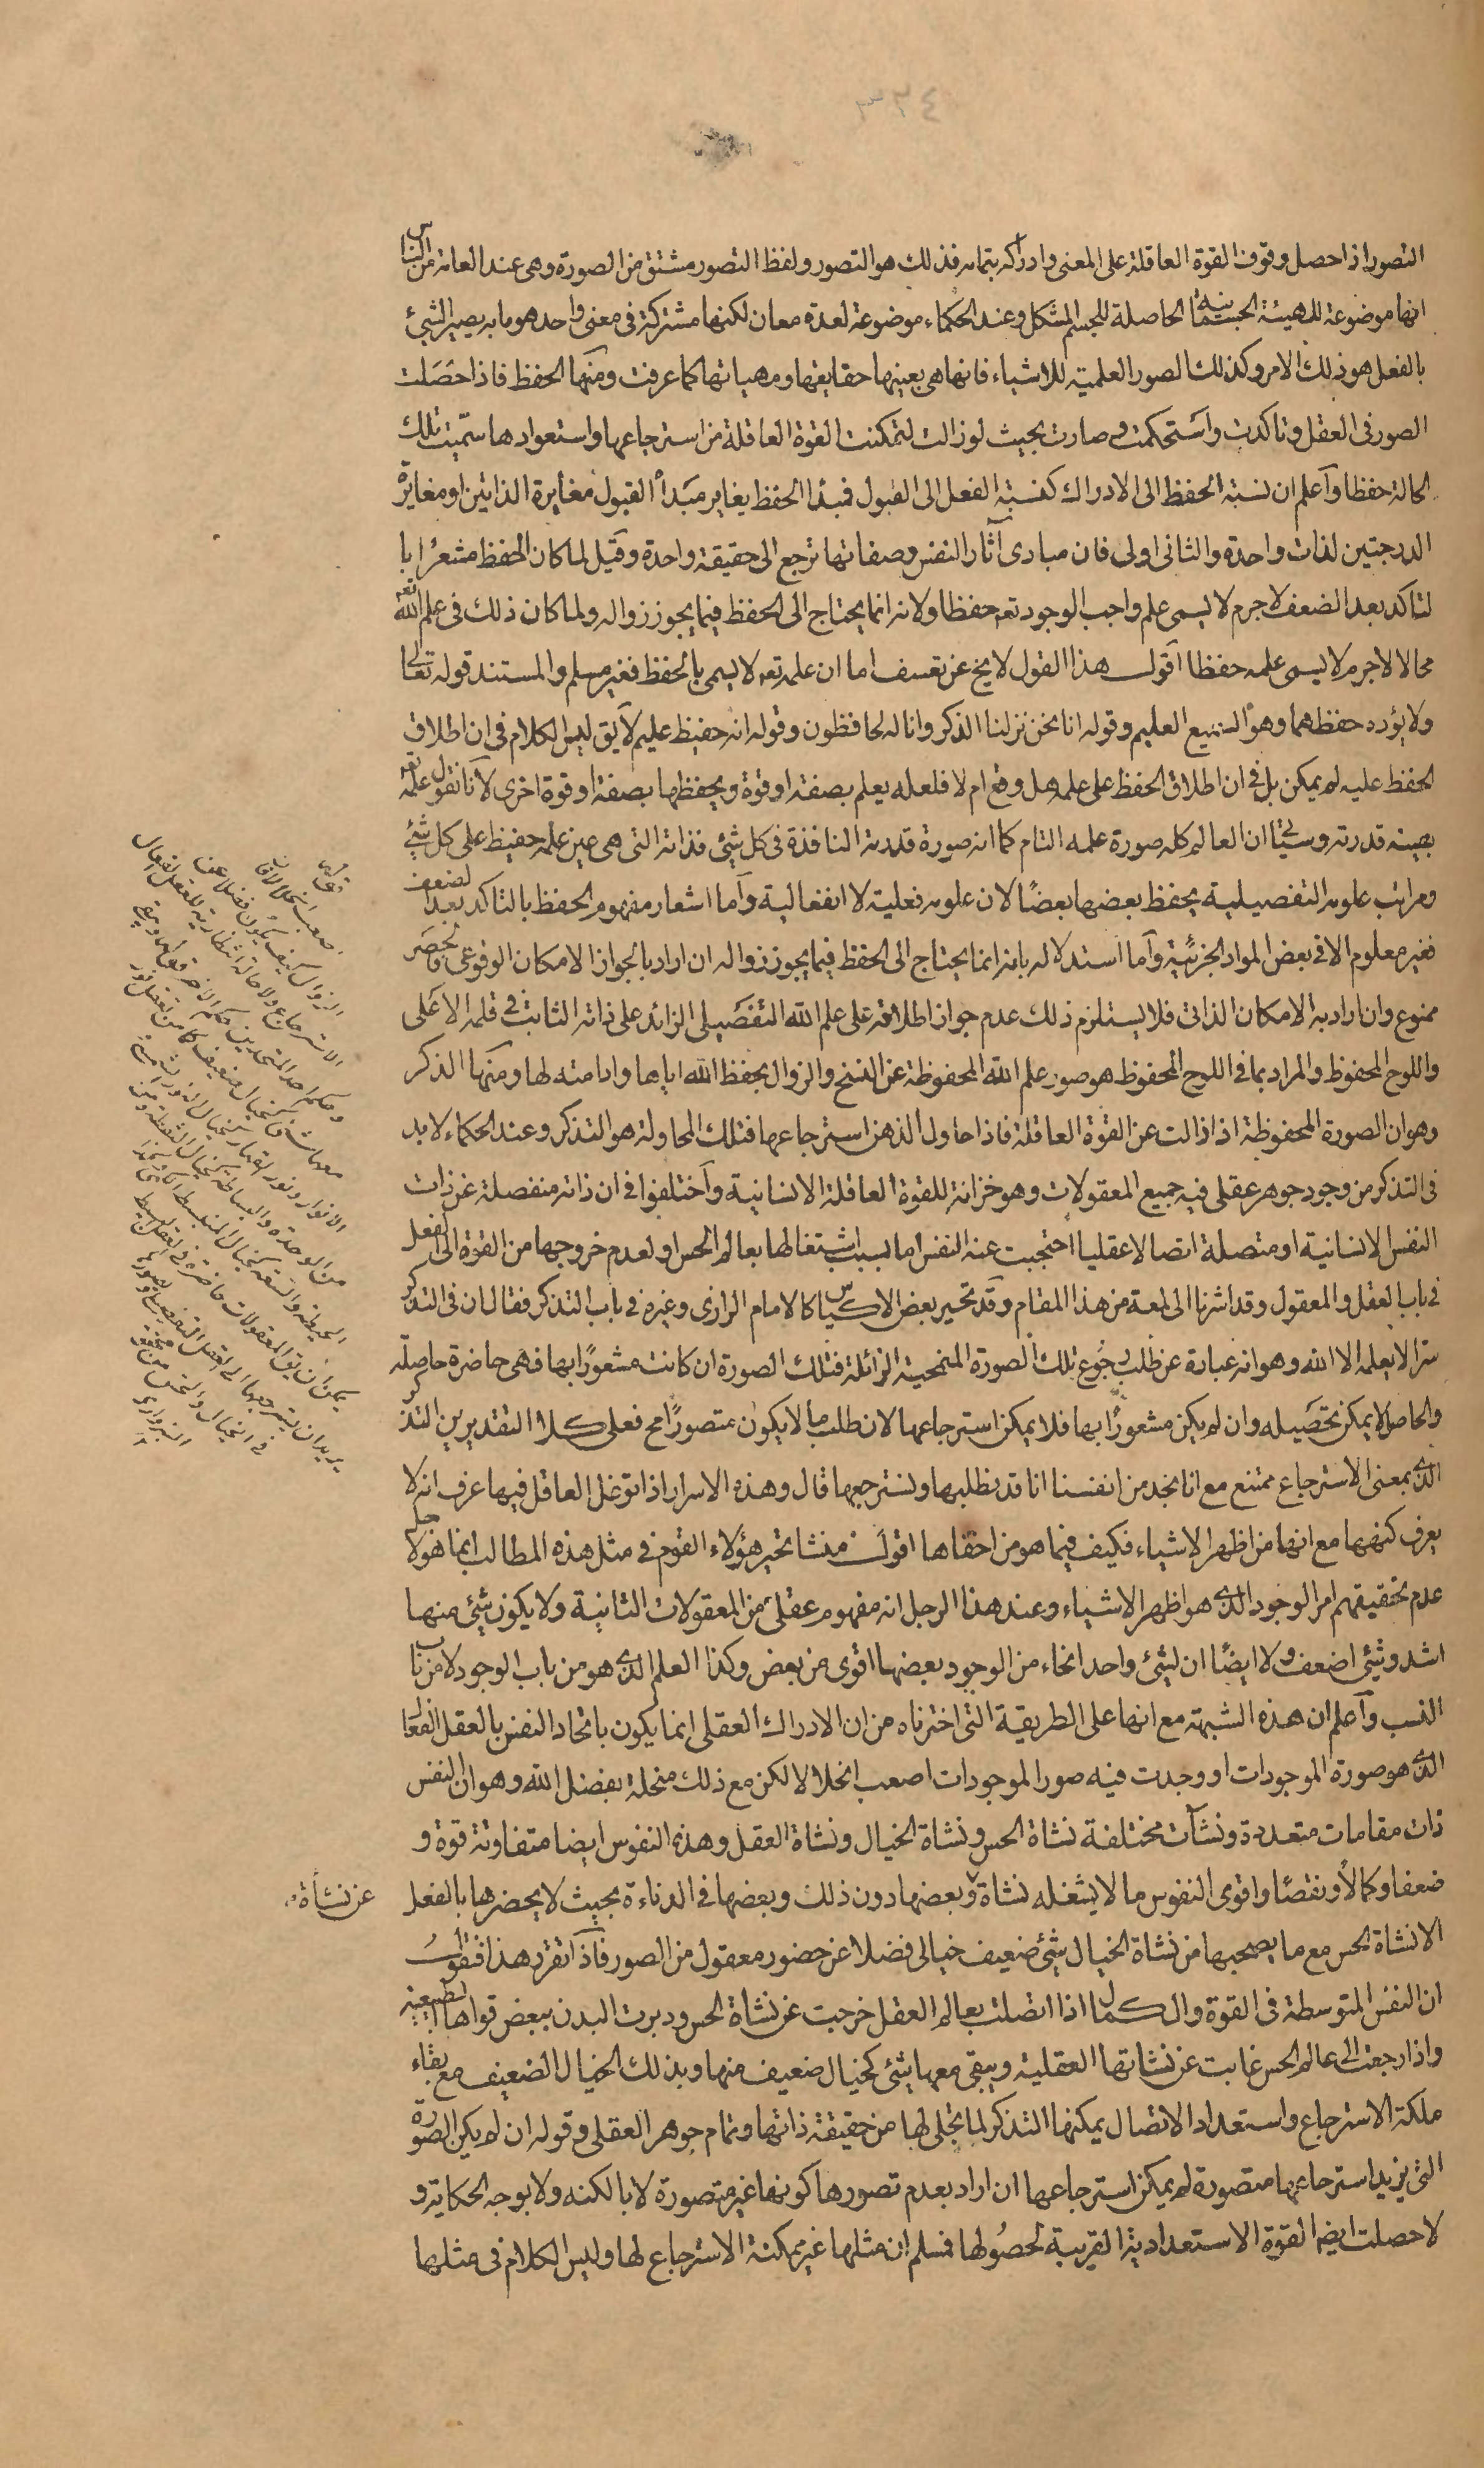 ٣٢٤
التصور اذا حصل وقوف القوة العاقلة على المعنى وادراكه بتمامه فذلك هو التصور ولفظ التصور مشتق من الصورة وهى عند العامة من الناس
انها موضوعة للهيئة الجسمانية الحاصلة للجسم المشكل وعند الحكماء موضوعة لعدة معان لكنها مشتركة فى معنى واحد هو ما به يصير الشيئ
بالفعل هو ذلك الامر وكذلك الصور العلمية للاشياء فانها هى بعينها حقايقها ومهياتها كما عرفت ومنها الحفظ فاذا حصلت
الصور فى العقل وتاكدت واستحكمت وصارت بحيث لو زالت لتمكنت القوة العاقلة من استرجاعها واستعوادها سميت تلك
الحالة حفظا واعلم ان نسبة الحفظ الى الادراك كنسبة الفعل الى القبول فمبدا الحفظ يغاير مبدأ القبول مغايرة الذاتين او مغايرة
الدرجتين لذات واحدة والثانى اولى فان مبادى آثار النفس وصفاتها ترجع الى حقيقة واحدة وقيل لما كان الحفظ مشعرا با
لتاكد بعد الضعف لاجرم لا يسمى علم واجب الوجود تعه حفظا ولانه انما يحتاج الى الحفظ فيما يجوز زواله ولما كان ذلك فى علم الله تعه
محالا لاجرم لا يسمى علمه حفظا اقول هذا القول لا يخ عن تعسف اما ان علمه تعه لا يسمى بالحفظ فغير مسلم والمستند قوله تعالى
ولا يؤده حفظهما وهو السميع العليم وقوله انا نحن نزلنا الذكر وانا له لحافظون وقوله انه حفيظ عليم لا يق ليس الكلام فى ان اطلاق
الحفظ عليه لم يمكن بل فى ان اطلاق الحفظ على علمه هل وقع ام لا فلعله يعلم بصفة او قوة ويحفظها بصفة او قوة اخرى لانا نقول علمه تعه
بعينه قدرته وسيجئ ان العالم كله صورة علمه التام كما انه صورة قدرته النافذة فى كل شيئ فذاته التى هى عين علمه حفيظ على كل شيئ
ومراتب علومه التفصيلية يحفظ بعضها بعضًا لان علومه فعلية لا انفعالية واما اشعار مفهوم الحفظ بالتاكد بعد لضعف
فغير معلوم الا فى بعض المواد الجزئية واما استدلاله بانه انما يحتاج الى الحفظ فيما يجوز زواله ان اراد بالجواز الامكان الوقوعى فالحصر
ممنوع وان اراد به الامكان الذاتى فلا يستلزم ذلك عدم جواز اطلاقه على علم الله التفصيلى الزائد على ذاته الثابت فى قلمه الاعلى
واللوح المحفوظ والمراد بما فى اللوح المحفوظ هو صور علم الله المحفوظة عن النسخ والزوال بحفظ الله اياها وادامته لها ومنها الذكر
وهو ان الصورة المحفوظة اذا زالت عن القوة العاقلة فاذا حاول الذهن استرجاعها فتلك المحاولة هو التذكر وعند الحكماء لابد
فى التذكر من وجود جوهر عقلى فيه جميع المعقولات وهو خزانة للقوة العاقلة الانسانية واختلفوا فى ان ذاته منفصلة عن ذات
النفس الانسانية او متصلة اتصالا عقليا احتجبت عنه النفس اما بسبب اشتغالها بعالم الحس او لعدم خروجها من القوة الى الفعل
فى باب العقل والمعقول وقد اشرنا الى لمعة من هذا المقام وقد تحير بعض الاكياس كالامام الرازى وغيره فى باب التذكر فقال ان فى التذكر
سرا لا يعلمه الا الله وهو انه عبارة عن طلب رجوع تلك الصورة المنمحية الزائلة فتلك الصورة ان كانت مشعورًا بها فهى حاضرة حاصلة
والحاصل لا يمكن تحصيله وان لم يكن مشعورًا بها فلا يمكن استرجاعها لان طلب ما لا يكون متصورًا مح فعلى كلا التقديرين التذكر
الذى بمعنى الاسترجاع ممتنع مع انا نجد من انفسنا انا قد نطلبها ونسترجعها قال وهذه الاسرار اذا توغل العاقل فيها عرف انه لا
يعرف كنهها مع انها من اظهر الاشياء فكيف فيما هو من اخفاها اقول منشا تحير هؤلاء القوم فى مثل هذه المطالب انما هو لاجل
عدم تحقيقهم امر الوجود الذى هو اظهر الاشياء وعند هذا الرجل انه مفهوم عقلى من المعقولات الثانية ولا يكون شيئ منها
اشد وشيئ اضعف ولا ايضًا ان لشيئ واحد انحاء من الوجود بعضها اقوى من بعض وكذا العلم الذى هو من باب الوجود لا من باب
النسب واعلم ان هذه الشبهة مع انها على الطريقة التى اخترناه من ان الادراك العقلى انما يكون باتحاد النفس بالعقل الفعال
الذى هو صورة الموجودات او وجدت فيه صور الموجودات اصعب انحلالا لكن مع ذلك منحلة بفضل الله وهو ان النفس
ذات مقامات متعددة ونشآت مختلفة نشاة الحس ونشاة الخيال ونشاة العقل وهذه النفوس ايضا متفاوتة قوة و
ضعفا وكمالًا ونقصًا واقوى النفوس ما لا يشغله نشاة وبعضها دون ذلك وبعضها فى الدناءة بحيث لا يحضرها بالفعل
عن نشأة
الا نشاة الحس مع ما يصحبها من نشاة الخيال شيئ ضعيف خيالى فضلا عن حضور معقول من الصور فاذا تقرر هذا فنقول
ان النفس المتوسطة فى القوة والكمال اذا اتصلت بعالم العقل خرجت عن نشاة الحس ودبرت البدن ببعض قواها الطبيعية
واذا رجعت الى عالم الحس غابت عن نشاتها العقلية ويبقى معها شيئ كخيال ضعيف منها وبذلك الخيال الضعيف مع بقاء
ملكة الاسترجاع واستعداد الاتصال يمكنها التذكر لما تجلى لها من حقيقة ذاتها وتمام جوهر العقلى وقوله ان لم يكن الصورة
التى يزيد استرجاعها متصورة لم يمكن استرجاعها ان اراد بعدم تصورها كونها غير متصورة لا بالكنه ولا بوجه الحكاية و
لا حصلت ايضا القوة الاستعدادية القريبة لحصولها فمسلم ان مثلها غير ممكنة الاسترجاع لها وليس الكلام فى مثلها